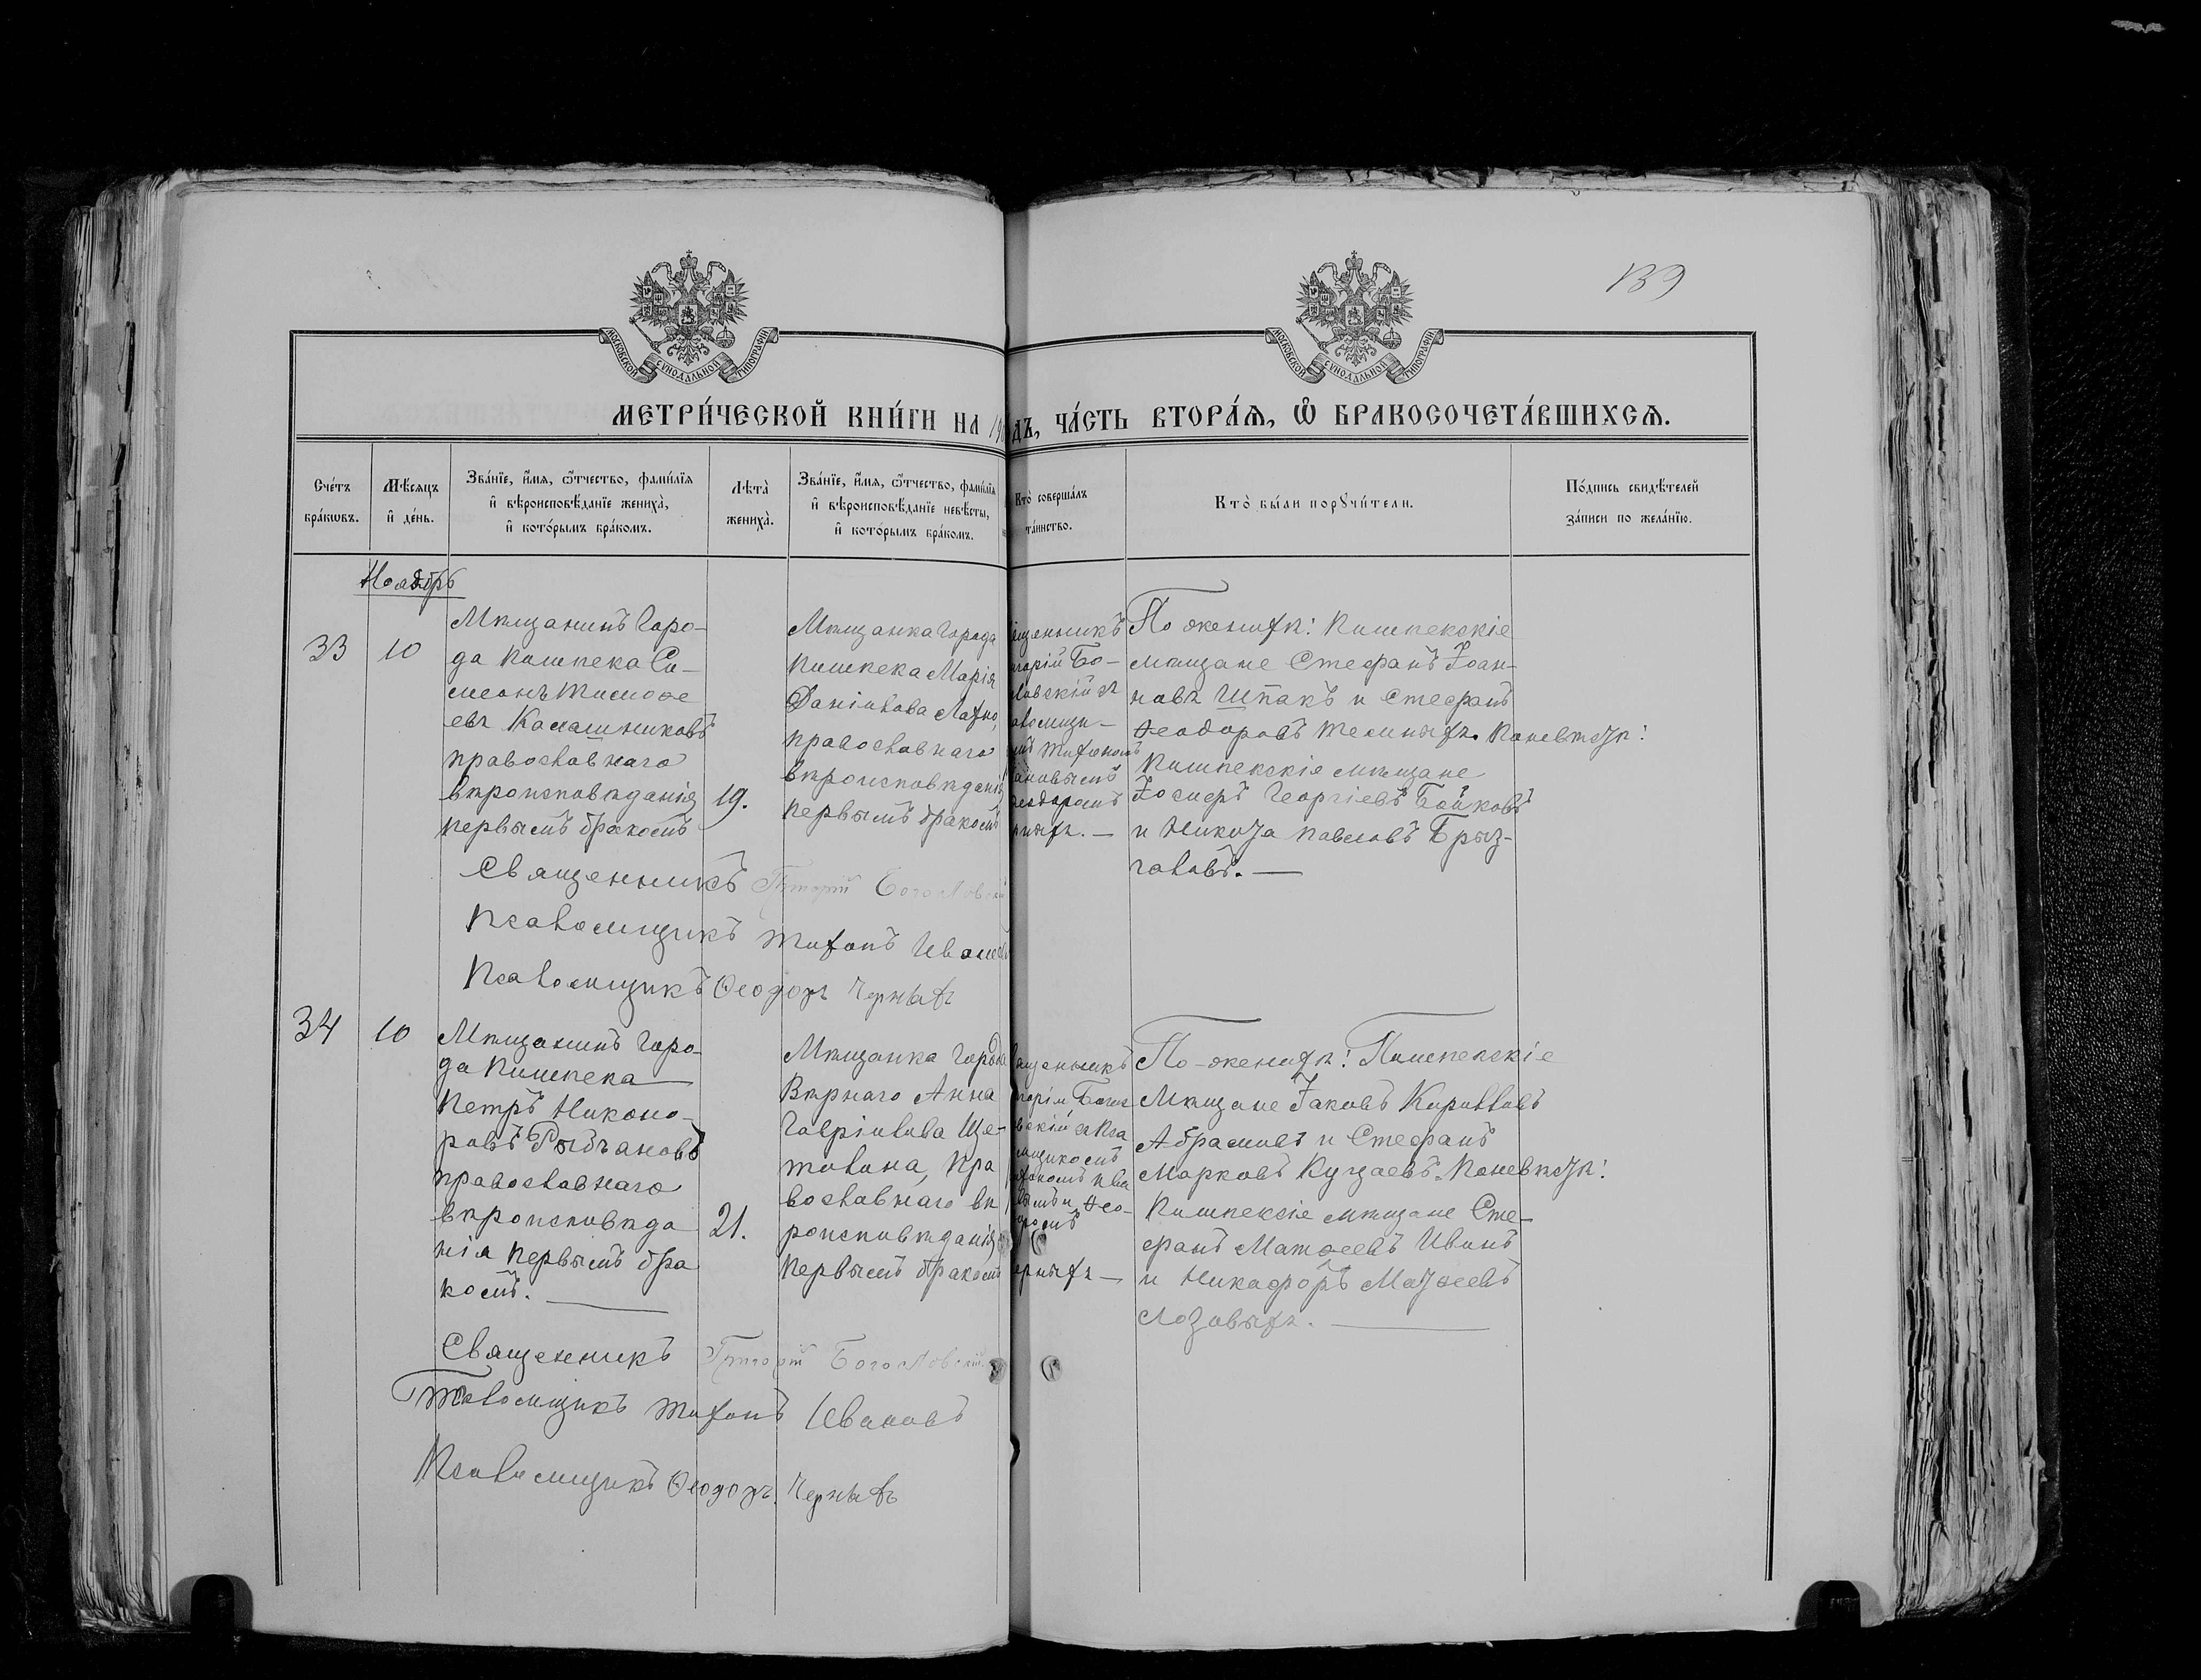 139
МОСКОВСКОЙ СѴНОДАЛЬНОЙ ТИПОГРАФІИ
МОСКОВСКОЙ СѴНОДАЛЬНОЙ ТИПОГРАФІИ
МЕТРИ́ЧЕСКОЙ КНИ́ГИ НА 19
ДЪ, ЧА́СТЬ ВТОРА́Ѧ, Ѡ҆ БРАКОСОЧЕТА́ВШИХСѦ.
Сче́тъ
бра́кѡвъ.
Мѣ́сѧцъ
и҆ де́нь.
Зва́нїе, и҆́мѧ, ѻ҆́тчество, фами́лїѧ
и҆ вѣроисповѣ́данїе жениха̀,
и҆ кото́рымъ бра́комъ.
Лѣта̀
жениха̀.
Зва́нїе, и҆́мѧ, ѻ҆́тчество, фами́лїѧ
и҆ вѣроисповѣ́данїе невѣ́сты,
и҆ кото́рымъ бра́комъ.
Кто̀ соверша́лъ
та́инство.
Кто̀ бы́ли порꙋчи́тели.
По́дпись свидѣ́телей
за́писи по жела́нїю.
Ноябрь
33
10
Мѣщанинъ Горо-
да Пишпека Си-
меонъ Тимофе
евъ Калашниковъ
православнаго
вѣроисповѣданія
первымъ бракомъ
19.
Мѣщанка Города
Пишпека Марія
Даніилова Лахно,
православнаго
вѣроисповѣданія
первымъ бракомъ
щенникъ
игорій Бо-
ловскій съ
аломщи-
мъ Тихономъ
ановымъ
Ѳеодоромъ
рныхъ. —
По женихѣ: Пишпекскіе
мѣщане Стефанъ Іоан-
новъ Шпакъ и Стефанъ
Ѳеодоровъ Телиныхъ. По невѣстѣ:
Пишпекскіе мѣщане
Іосифъ Георгіевъ Байковъ
и Никита Павловъ Брыз-
галовъ. —
Священникъ Григорій Богословскій
Псаломщикъ Тихонъ Ивановъ
Псаломщикъ Ѳеодоръ Черныхъ
34
10
Мѣщанинъ Горо-
да Пишпека
Петръ Никоно-
ровъ Рыбчановъ
православнаго
вѣроисповѣда
нія первымъ бра
комъ. —
21.
Мѣщанка Города
Вѣрнаго Анна
Гавріилова Ще-
толина, Пра
вославнаго вѣ
роисповѣданія
первымъ бракомъ
ященникъ
игорій Богос
вскій съ Пса
мщикомъ
ихономъ Ива
вымъ и Ѳео-
ромъ
ерныхъ —
По-женихѣ: Пишпекскіе
Мѣщане Іаковъ Кирилловъ
Абрамовъ и Стефанъ
Марковъ Куцаевъ. По невѣстѣ:
Пишпекскіе мѣщане Сте-
фанъ Матѳеевъ Ивинъ
и Никафоръ Матѳеевъ
Лозовыхъ. —
Священникъ Григорій Богословскій
Псаломщикъ Тихонъ Ивановъ
Псаломщикъ Ѳеодоръ Черныхъ